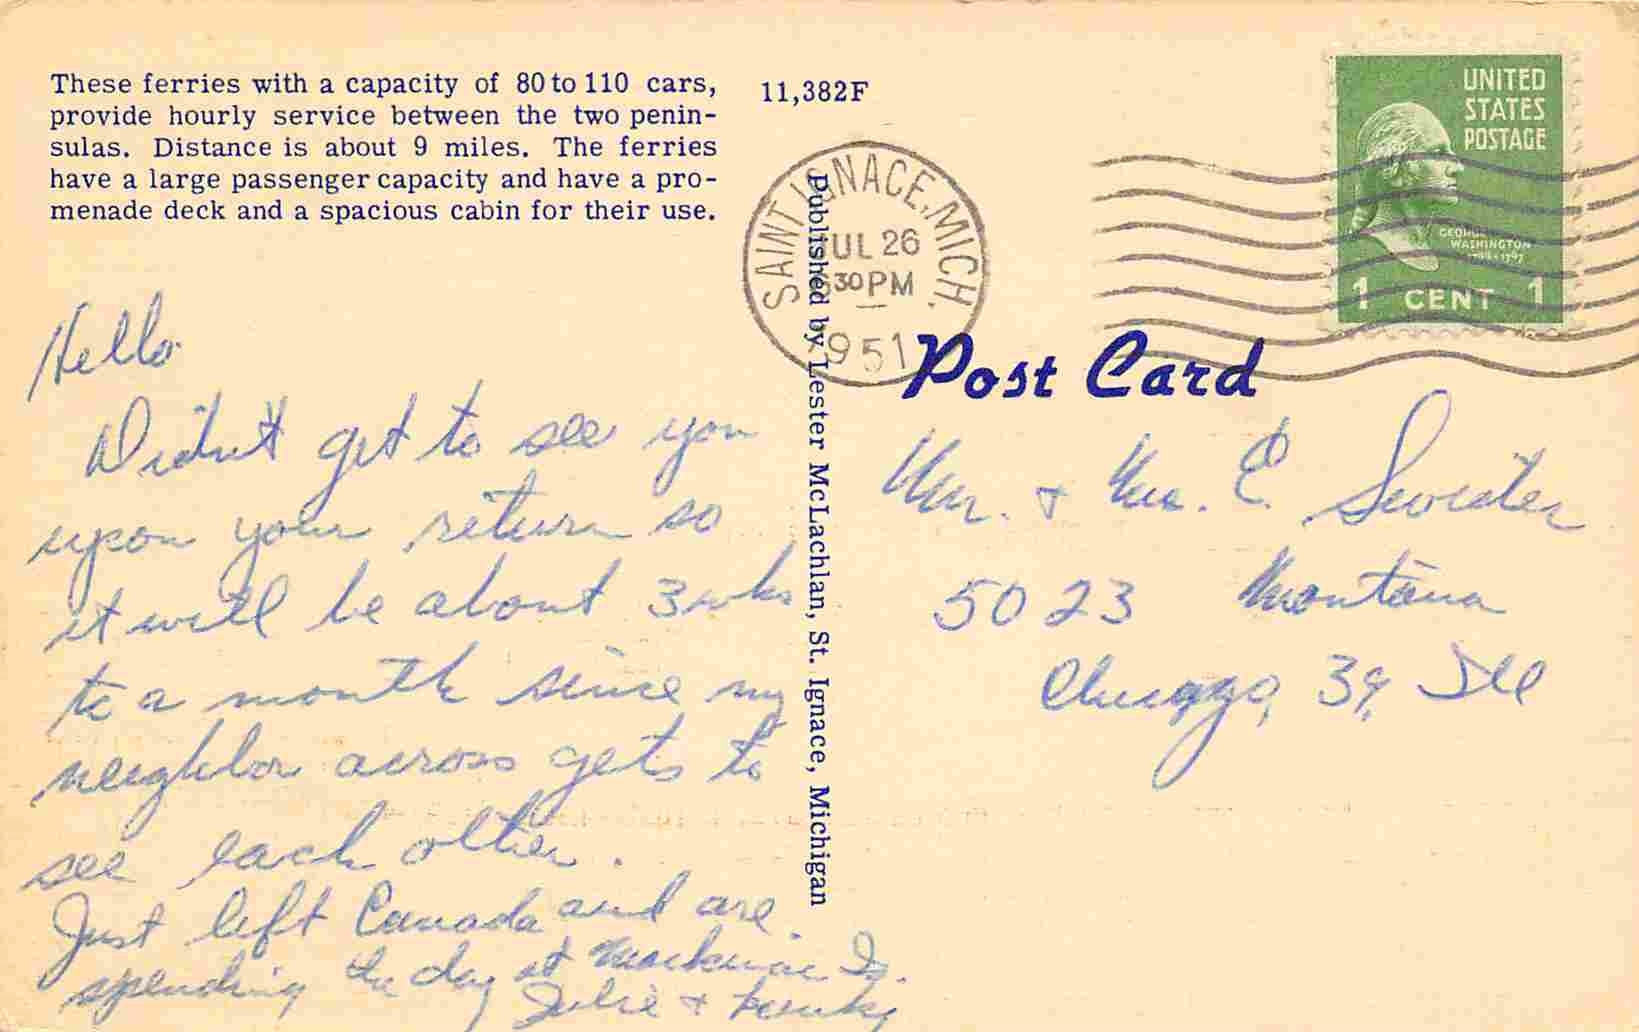 These ferries with a capacity of 80 to 110 cars,
provide hourly service between the two penin-
sulas. Distance is about 9 miles. The ferries
have a large passenger capacity and have a pro-
menade deck and a spacious cabin for their use.
11,382F
SAINT IGNACE, MICH.
JUL 26
630 PM
1951
UNITED
STATES
POSTAGE
GEORGE
WASHINGTON
1 CENT 1
Post Card
Published by Lester McLachlan, St. Ignace, Michigan
Hello
Didn't get to see you
upon your return so
it will be about 3 wks
to a month since my
neighbor across gets to
see each other.
Just left Canada and are
spending the day at Mackinac Is.
Julie &
Mr. & Mrs. E.
5023 Montana
Chicago, 39, Ill